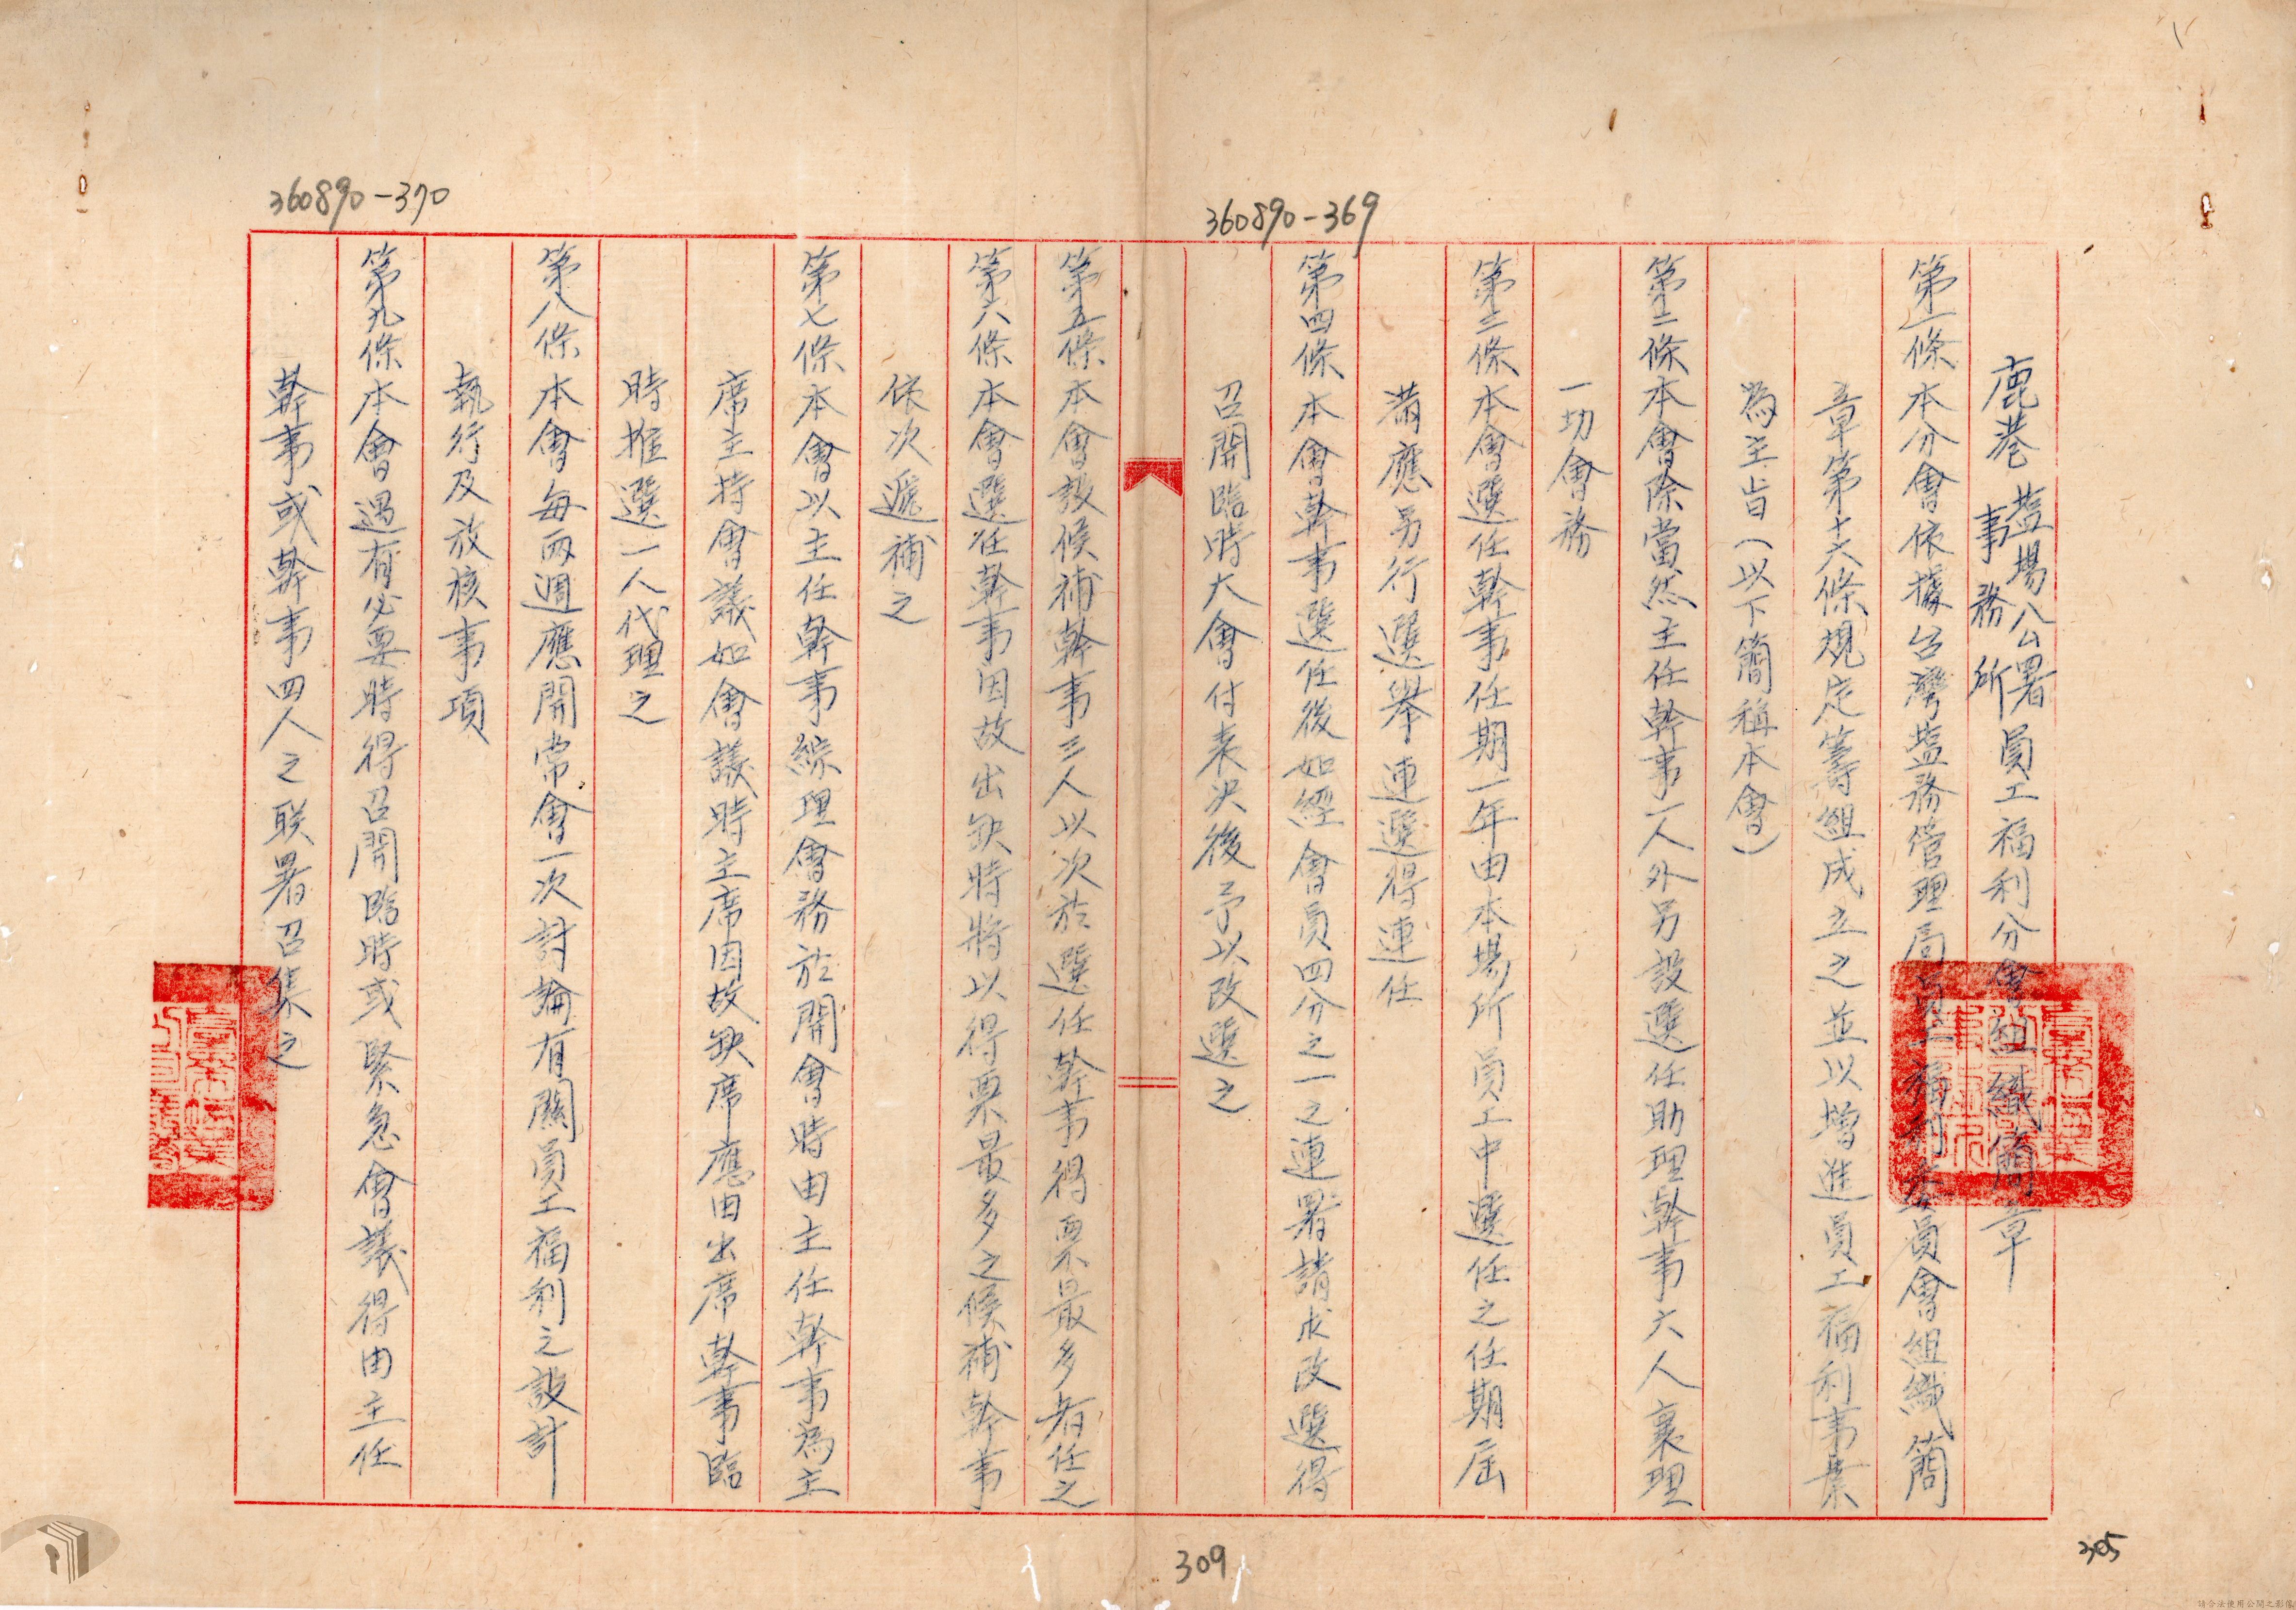 360890-369
鹿港鹽場公署事務所員工福利分會組織簡章
第一條本分會依據台灣鹽務管理局員工福利委員會組織簡
章第十六條規定籌組成立之並以增進員工福利事業
為主旨(以下簡稱本會)
第二條本會除當然主任幹事一人外另設選任助理幹事六人襄理
一切會務
第三條本會選任幹事任期一年由本場所員工中選任之任期屆
滿應另行選舉連選得連任
第四條本會幹事選任後如經會員四分之一之連署請求改選得
召開臨時大會付表決後予以改選之
360890-370
第五條本會設候補幹事三人以次於選任幹事得票最多者任之
第六條本會選任幹事因故出缺時將以得票最多之候補幹事
依次遞補之
第七條本會以主任幹事綜理會務於開會時由主任幹事為主
席主持會議如會議時主席因故缺席應由出席幹事臨
時推選一人代理之
第八條本會每兩週應開常會一次討論有關員工福利之設計
執行及放核事項
第九條本會遇有必要時得召開臨時或緊急會議得由主任
幹事或幹事四人之联署召集之
309
305
請合法使用公開之影像